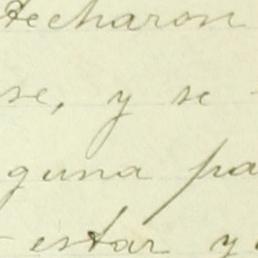 echaron
se, y se
guna pa
estar y